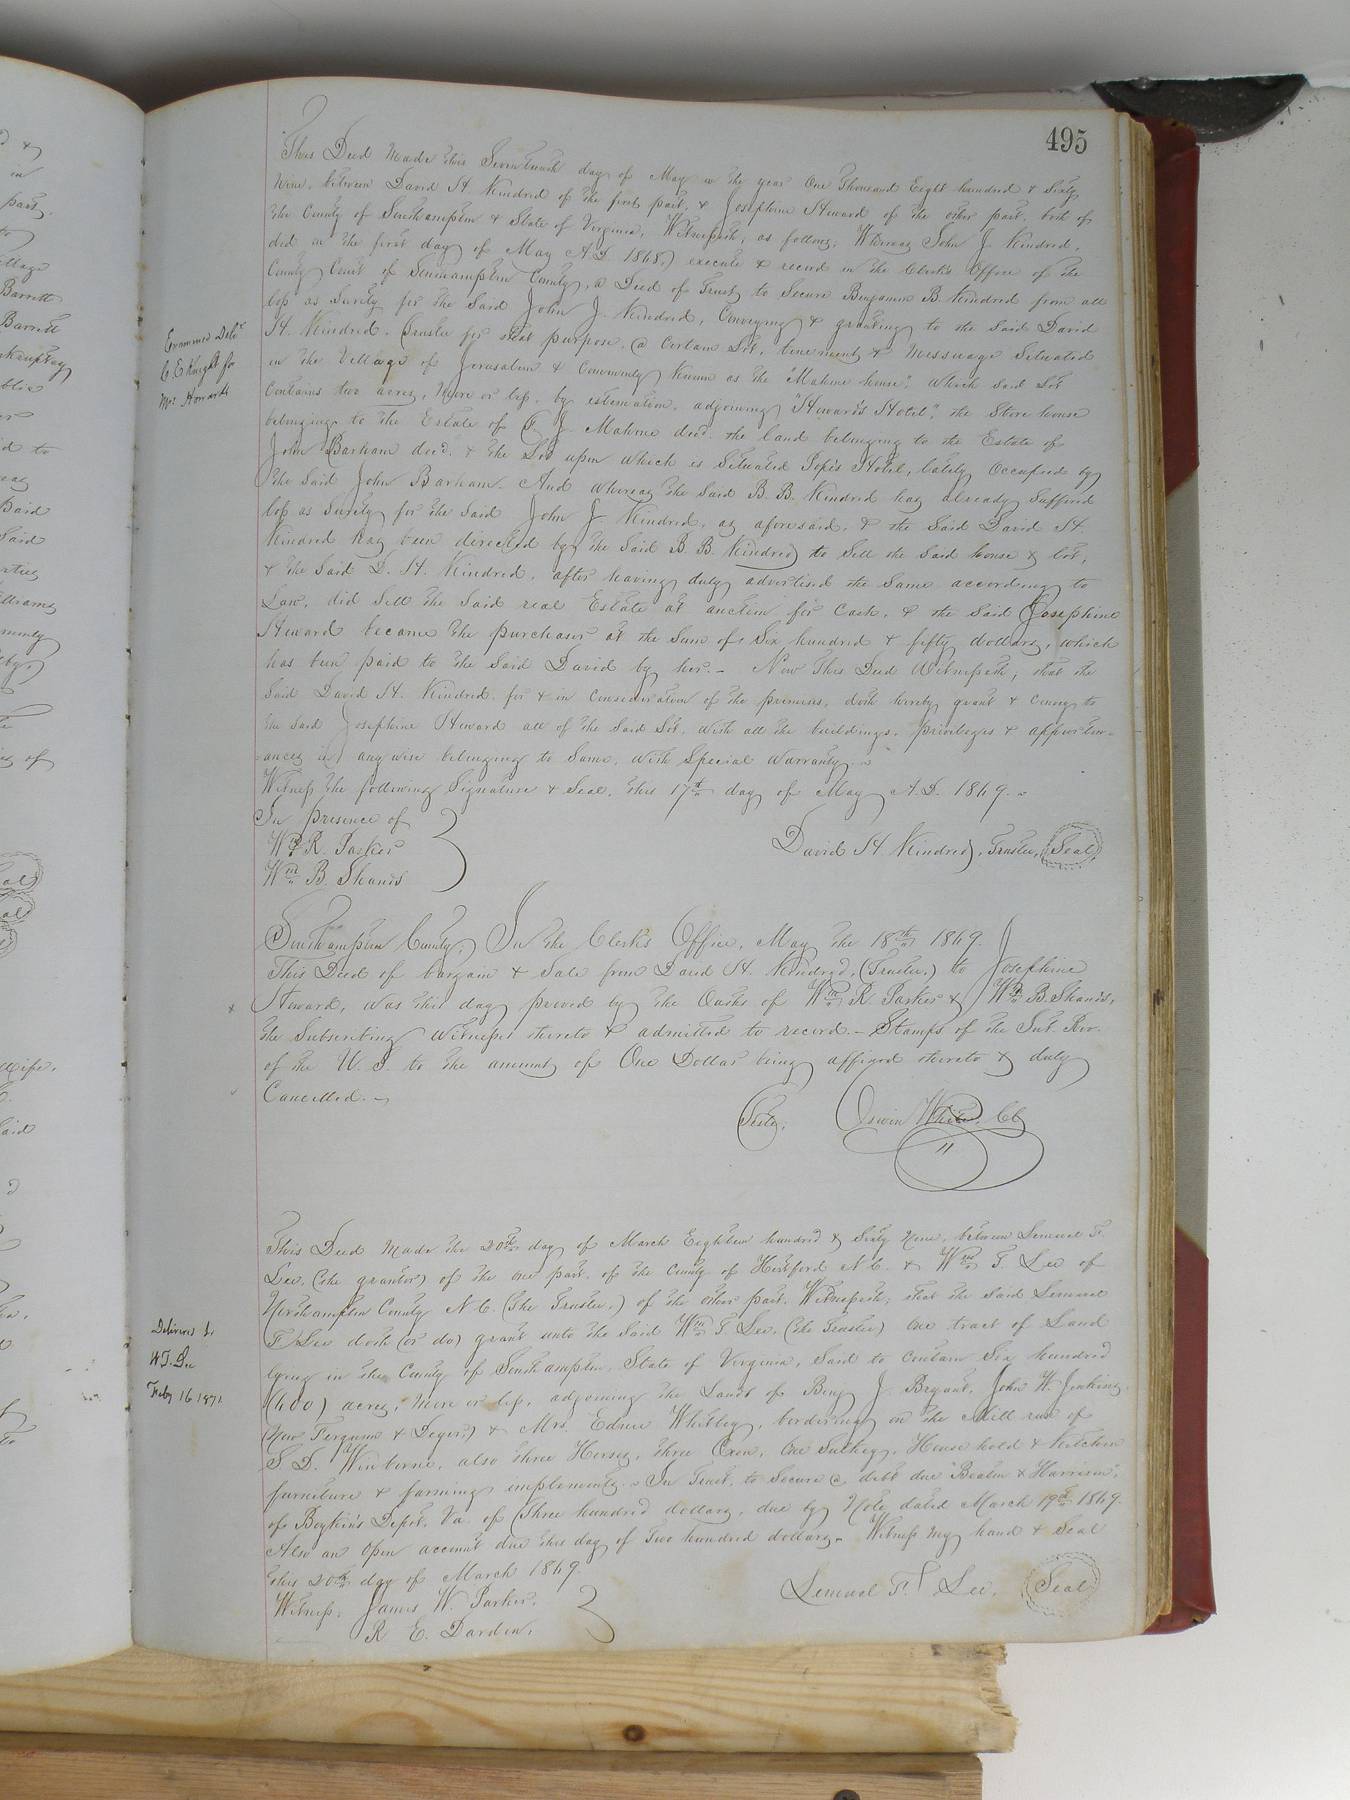 495
This Deed Made this Seventeenth day of May in the year One Thousand Eight hundred & Sixty
Nine, between David H. Kindred of the first part, & Josephine Howard of the other part, both of
the County of Southampton & State of Virginia, Witnesseth, as follows; Whereas John J. Kindred,
did on the first day of May A.D. 1868, execute & record in the Clerk's Office of the
County Court of Southampton County, a Deed of Trust, to Secure Benjamin B. Kindred from all
loss as Surety for the Said John J. Kindred, Conveying & granting to the Said David
H. Kindred, Trustee for that purpose, a Certain Lot, tenement & messuage Situated
in the Village of Jerusalem & Commonly Known as the "Mahone house", which Said Lot
Contains two acres, More or less, by estimation, adjoining "Howard's Hotel", the Store house
belonging to the Estate of F. J. Mahone decd. the land belonging to the Estate of
John Barham decd. & the Lot upon which is Situated Pope's Hotel, lately Occupied by
the Said John Barham. And whereas the Said B. B. Kindred has already Suffered
loss as Surety for the Said John J Kindred, as aforesaid, & the Said David H
Kindred has been directed by the Said B. B. Kindred to Sell the Said house & lot,
& the Said D. H. Kindred, after having duly advertised the Same according to
Law, did Sell the Said real Estate at auction for Cash, & the Said Josephine
Howard became the purchaser at the Sum of Six hundred & fifty dollars, which
has been paid to the Said David by her. – Now This Deed Witnesseth, that the
Said David H. Kindred, for & in Consideration of the premises, doth hereby grant & Convey to
the Said Josephine Howard all of the Said Lot, with all the buildings, privileges & appurten-
-ances in any wise belonging to Same, with Special Warranty.
Witness the following Signature & Seal, this 17th day of May A.D. 1869.
In presence of
Wm R. Parker
Wm B. Shands
David H. Kindred, Trustee, Seal
Examined Deld
C. E Knight for
Mrs Howard
Southampton County, In the Clerk's Office, May the 18th 1869.
This Deed of bargain & Sale from David H. Kindred, (Trustee,) to Josephine
Howard, was this day proved by the Oaths of Wm R. Parker & Wm B. Shands,
the Subscribing Witnesses thereto & admitted to record. – Stamps of the Int. Rev.
of the U. S. to the amount of One Dollar being affixed thereto & duly
Cancelled. –
Teste; White, Clk
This Deed Made the 20th day of March Eighteen hundred & Sixty Nine, between Lemuel T.
Lee, (the grantor) of the one part, of the County of Hertford N.C. & Wm T. Lee of
Northampton County N.C. (the Trustee,) of the other part, Witnesseth; that the Said Lemuel
T. Lee doth (or do) grant unto the Said Wm T Lee, (the Trustee) one tract of Land
lying in the County of Southampton, State of Virginia, Said to Contain Six hundred
(600) acres, More or less, adjoining the Lands of Benj J. Bryant, John W. Jenkins,
(Now Ferguson & ) & Mrs. Whitley, bordering on the Mill run of
S. D. Winborne, also three Horses, three Oxen, One Sulkey, House hold & Kitchen
furniture & farming implements. In Trust, to Secure a debt due "Beaton & Harrison",
of Boykin's Depot, Va. of (three hundred dollars, due by Note, dated March 19th 1869.
Also an Open account due this day of Two hundred dollars. Witness my hand & Seal
this 20th day of March 1869.
Lemuel T. Lee. Seal
Witness; James W. Parker,
R. E. Darden.
Delivered to
W. T. Lee
Feby 16 1871